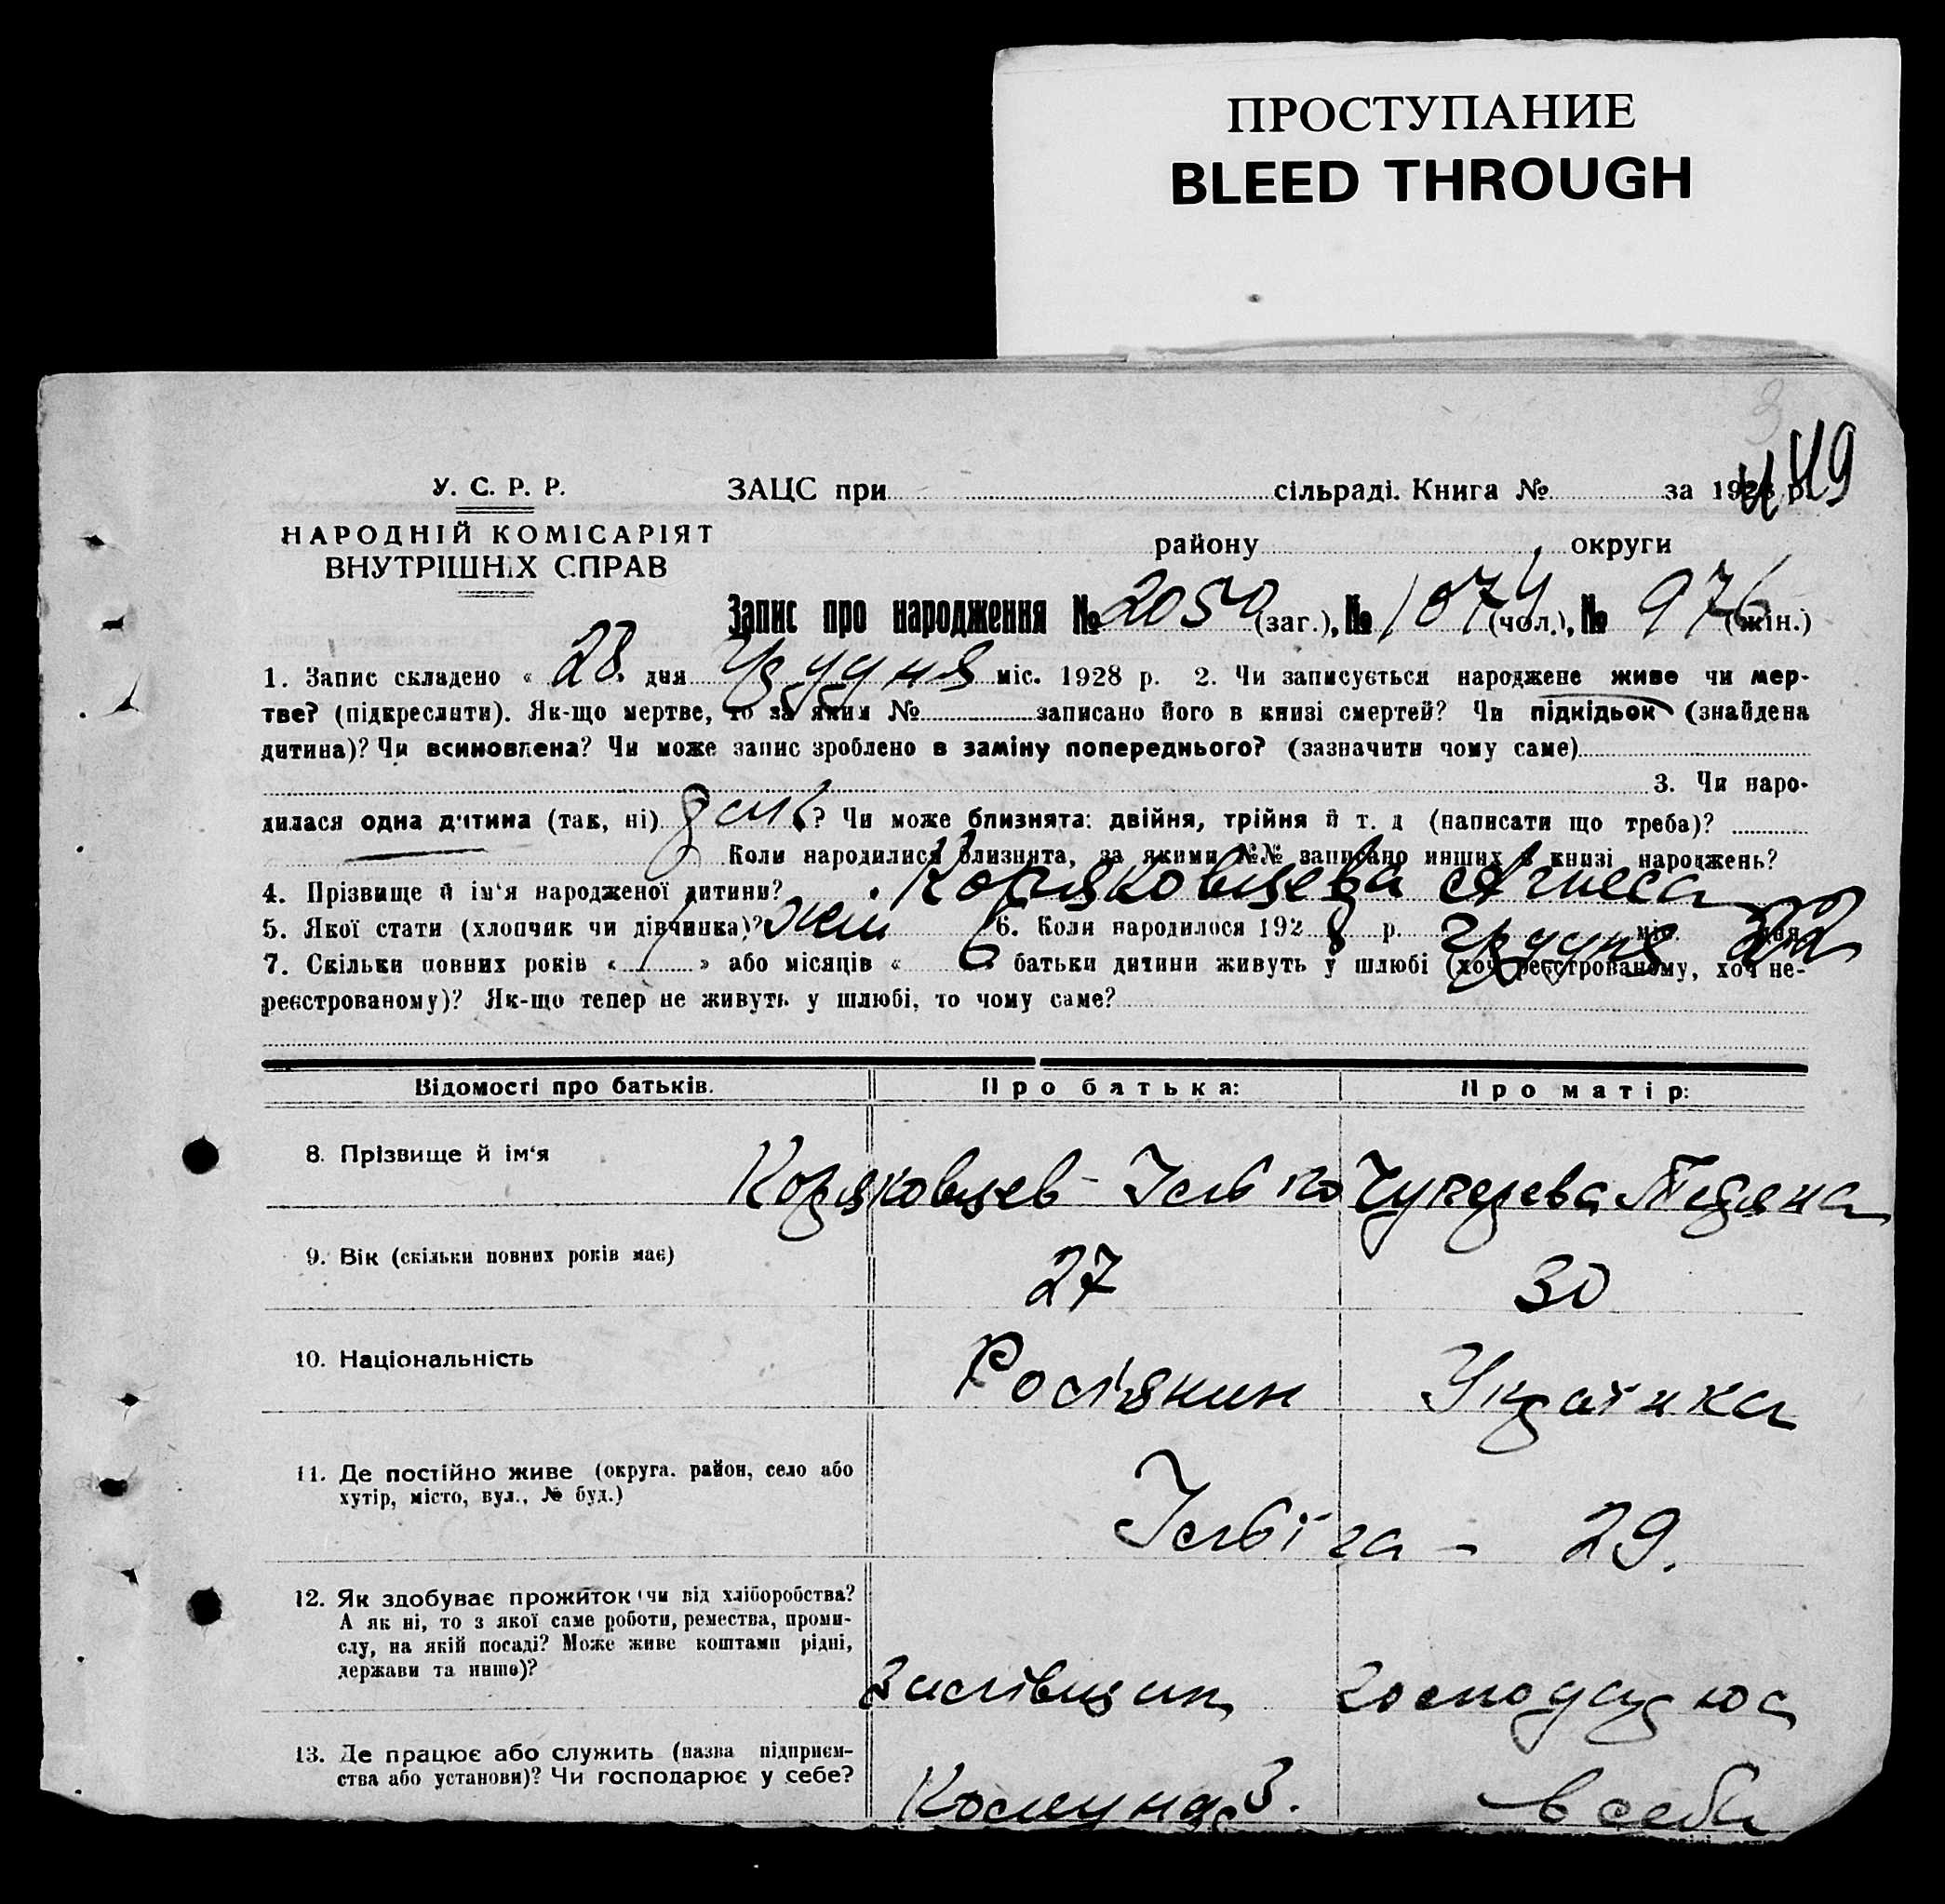 ПРОСТУПАНИЕ
BLEED THROUGH
449
У. С. Р. Р.
НАРОДНІЙ КОМІСАРІЯТ
ВНУТРІШНІХ СПРАВ
ЗАЦС при сільраді. Книга № за 1928 р.
району округи
Запис про народження № 2050 (заг.), № 1074 (чол.), № 976 (жін.)
1. Запис складено « 28 » дня Грудня міс. 1928 р. 2. Чи записується народжене живе чи мер-
тве? (підкреслити). Як-що мертве, то за яким № записано його в книзі смертей? Чи підкідьок (знайдена
дитина)? Чи всиновлена? Чи може запис зроблено в заміну попереднього? (зазначити чому саме)
3. Чи наро-
дилася одна дитина (так, ні) ? Чи може близнята: двійня, трійня й т. д (написати що треба)?
Коли народилися близнята, за якими №№ записано инших в книзі народжень?
4. Прізвище й ім'я народженої дитини? Коряковцева Агнеса
5. Якої стати (хлопчик чи дівчинка)? жін 6. Коли народилося 1928 р. Грудня міс. 22 дня
7. Скільки повних років « 1 » або місяців « 6 » батьки дитини живуть у шлюбі (хоч реєстрованому, хоч не-
реєстрованому)? Як-що тепер не живуть у шлюбі, то чому саме?
Відомості про батьків. Про батька: Про матір:
8. Прізвище й ім'я Коряковцев Тетяна
9. Вік (скільки повних років має) 27 30
10. Національність Росіянин Українка
11. Де постійно живе (округа. район, село або
хутір, місто, вул., № буд.) 29.
12. Як здобуває прожиток (чи від хліборобства?
А як ні, то з якої саме роботи, ремества, проми-
слу, на якій посаді? Може живе коштами рідні,
держави та инше)?
13. Де працює або служить (назва підприєм-
ства або установи)? Чи господарює у себе? в себе